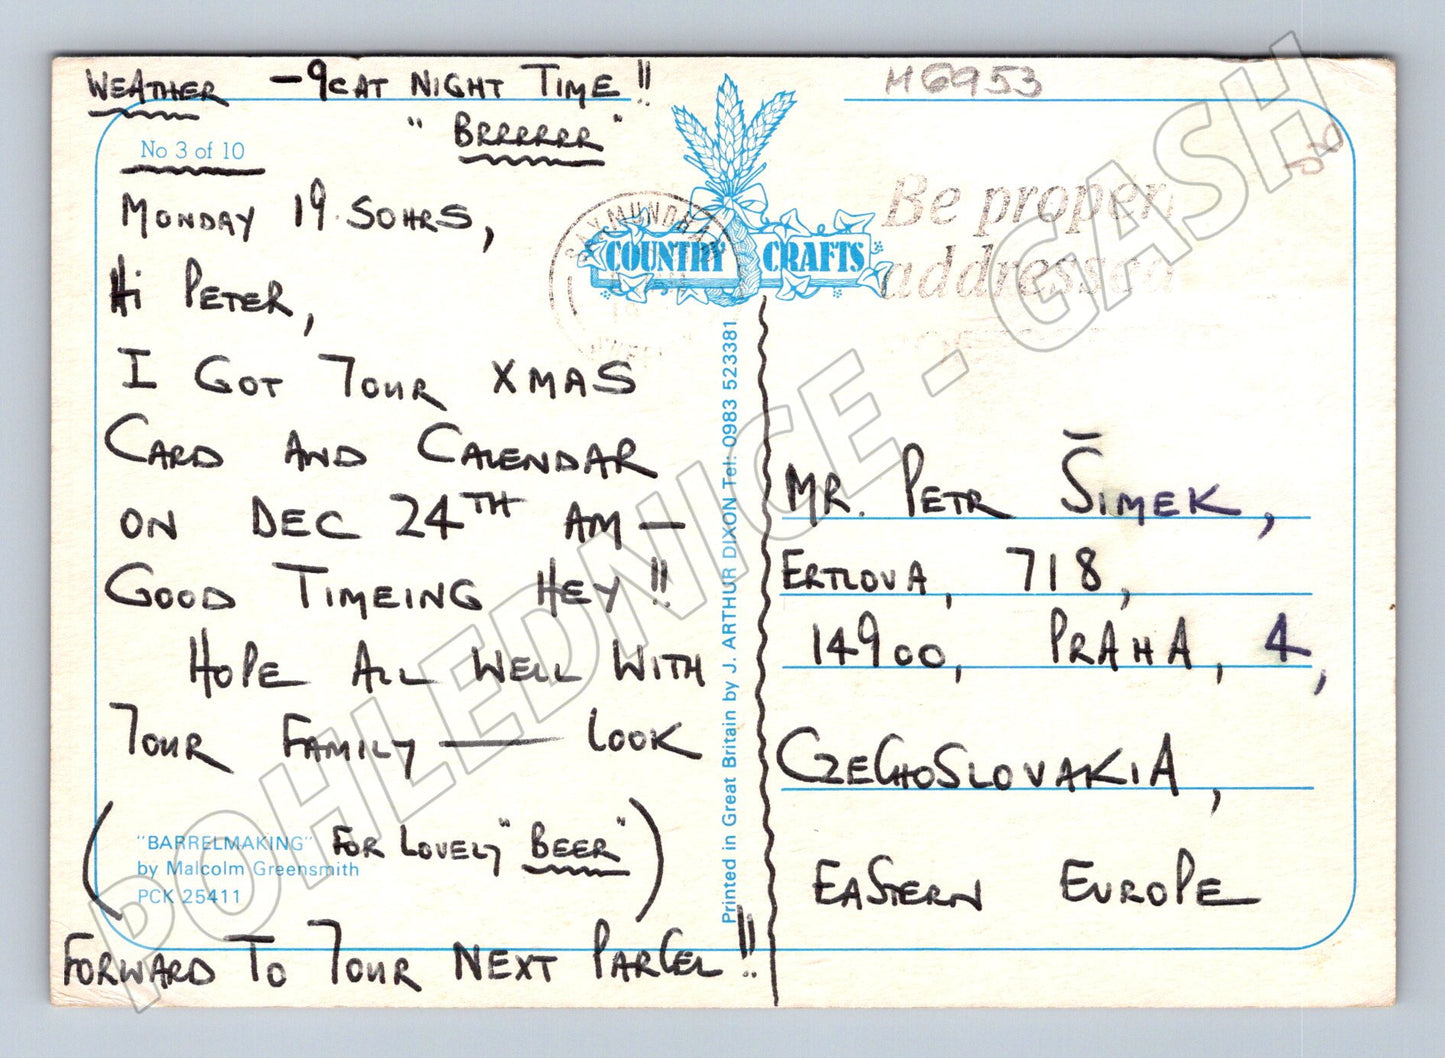 WEATHER -9C AT NIGHT TIME !!
"BRRRRRR"
No 3 of 10
MONDAY 19.50HRS,
HI PETER,
I GOT YOUR XMAS
CARD AND CALENDAR
ON DEC 24TH AM —
GOOD TIMEING HEY !!
HOPE ALL WELL WITH
YOUR FAMILY — LOOK
( "BARRELMAKING" FOR LOVELY "BEER" )
by Malcolm Greensmith
PCK 25411
FORWARD TO YOUR NEXT PARCEL !!
COUNTRY CRAFTS
Printed in Great Britain by J. ARTHUR DIXON Tel: 0983 523381
M6953
Be proper
addressed
MR. PETR ŠIMEK,
ERTLOVA, 718,
14900, PRAHA, 4,
CZECHOSLOVAKIA,
EASTERN EUROPE
POHLEDNICE - GASH